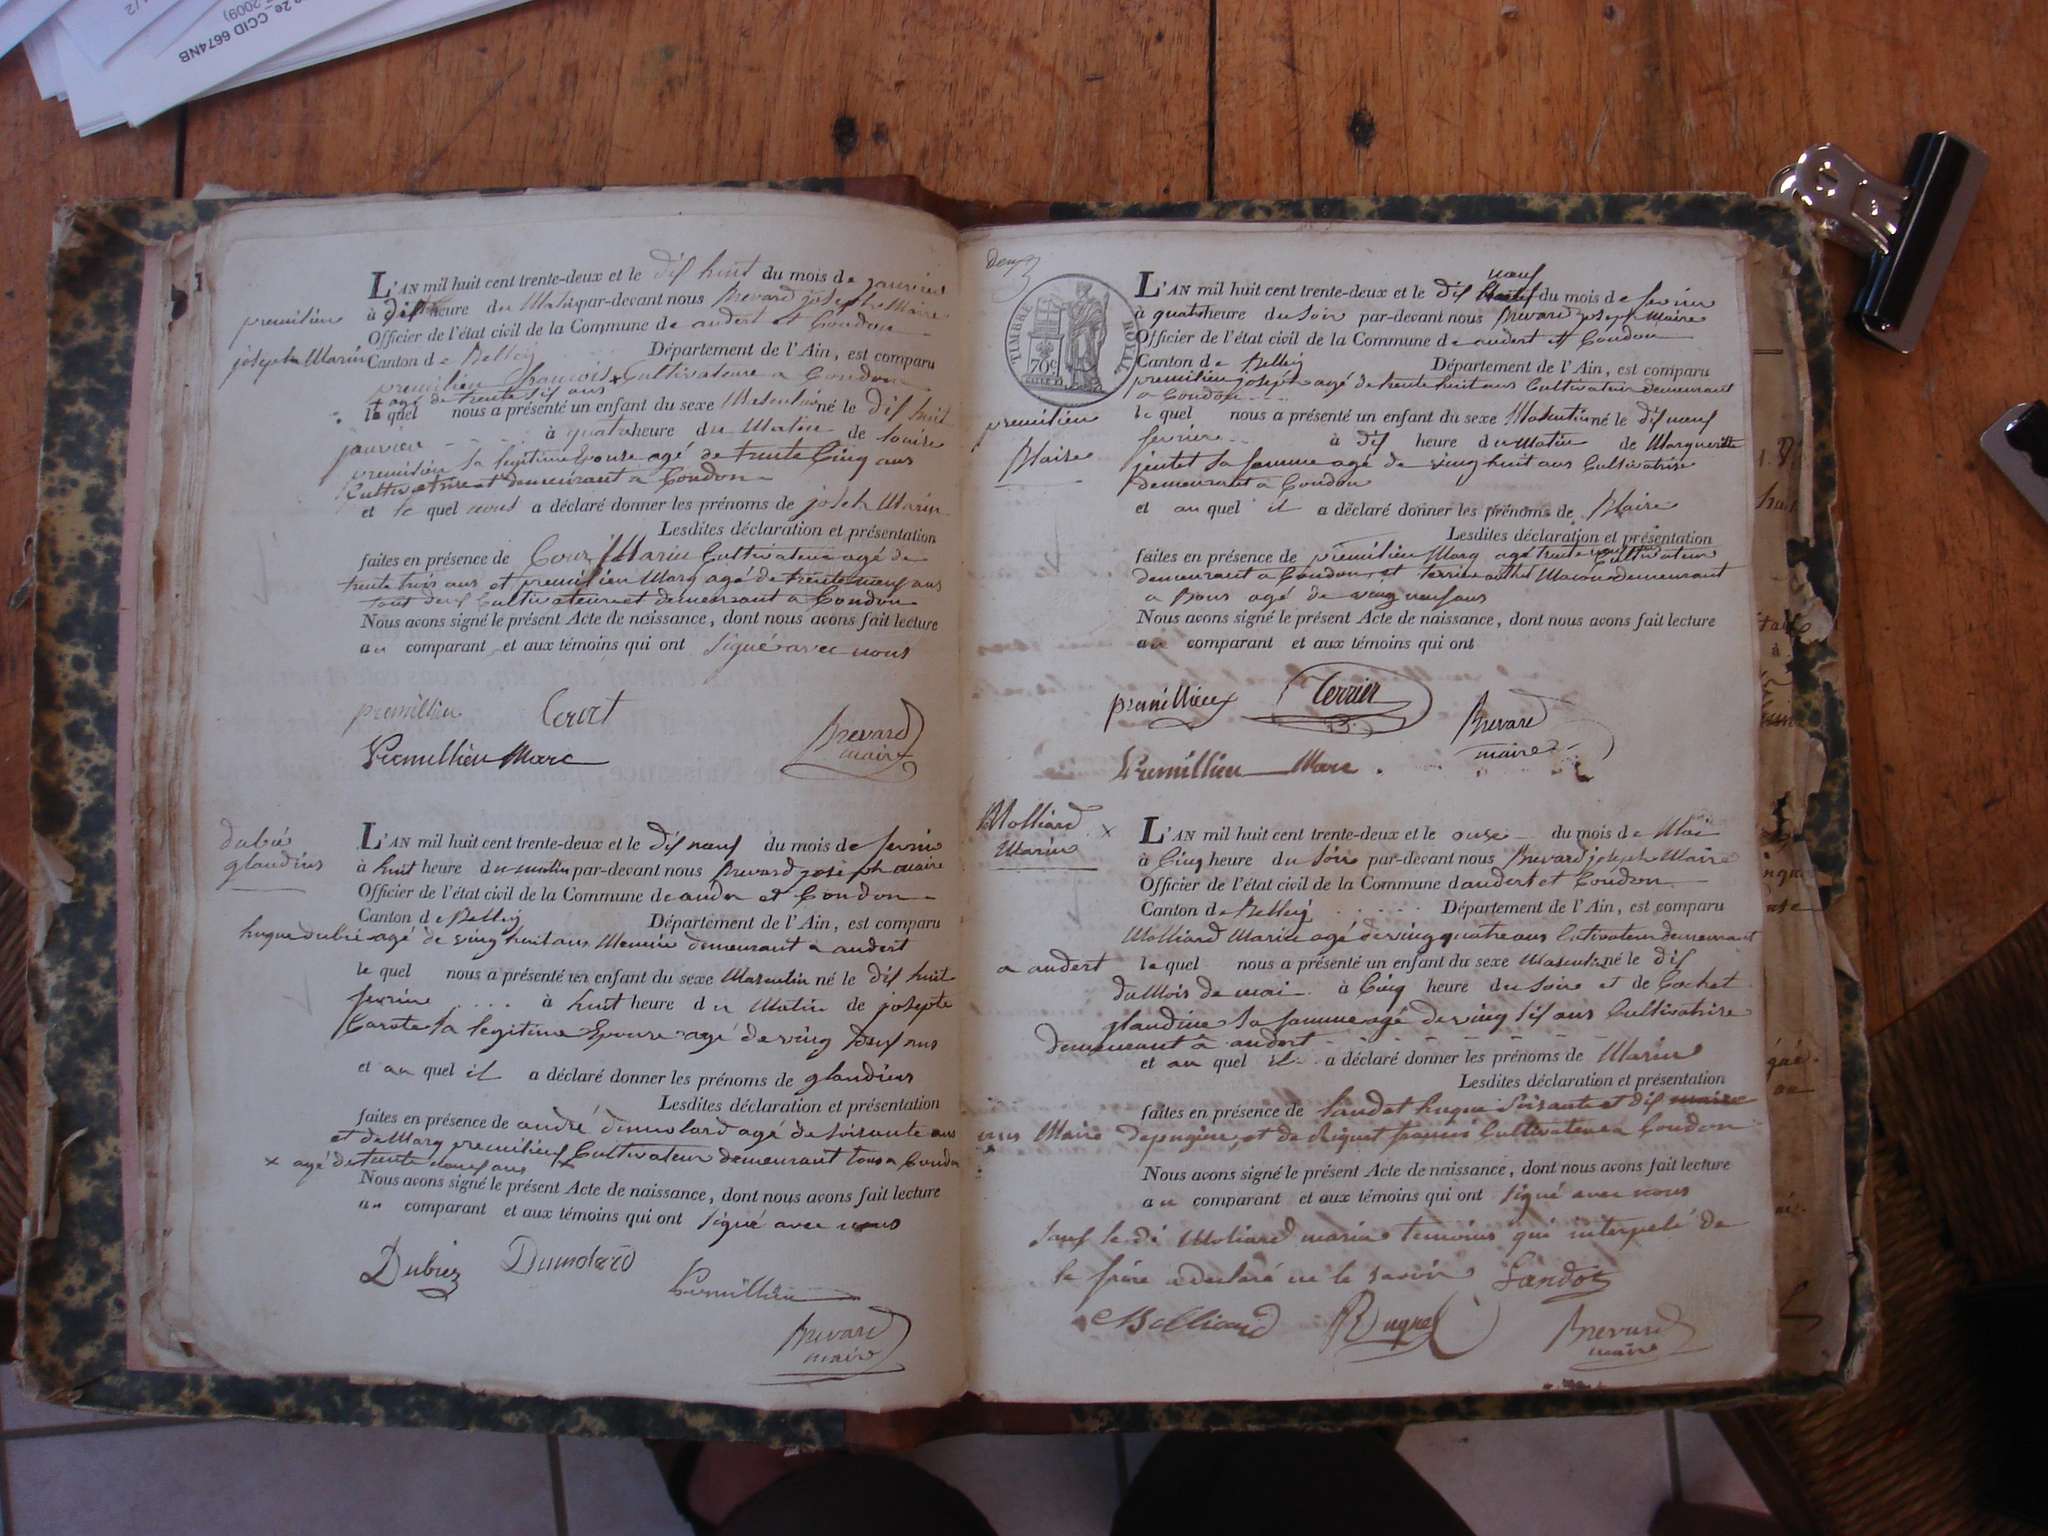 2e_CCID 6674NB
2009)
premilieu
joseph Marin
L'AN mil huit cent trente-deux et le dix huit du mois de janvier
à dix heure du Matin par-devant nous Brevard joseph Maire
Officier de l'état civil de la Commune de andert et Condon
Canton de Belley Département de l'Ain, est comparu
premilieu francois + Cultivateur a Condon
+ agé de trente six ans
le quel nous a présenté un enfant du sexe Masculin né le dix huit
janvier à quatre heure du Matin de louise
premilieu sa legitime Epouse agé de trente Cinq ans
Cultivatrice et demeurant a Condon
et le quel nous a déclaré donner les prénoms de joseph Marin
Lesdites déclaration et présentation
faites en présence de Marin Cultivateur agé de
trente trois ans et premilieu Marq agé de trente neuf ans
tout deux Cultivateur et demeurant a Condon
Nous avons signé le présent Acte de naissance, dont nous avons fait lecture
au comparant et aux témoins qui ont signé avec nous
premillieu
Premillieu Marc
Brevard
maire
dubié
glaudius
L'AN mil huit cent trente-deux et le dix neuf du mois de fevrier
à huit heure du matin par-devant nous Brevard joseph maire
Officier de l'état civil de la Commune de andert et Condon
Canton de Belley Département de l'Ain, est comparu
hugue dubié agé de ving huit ans demeurant a andert
le quel nous a présenté un enfant du sexe Masculin né le dix huit
fevrier à huit heure du Matin de josepte
Carote sa legitime Epouse agé de ving deux ans
et au quel il a déclaré donner les prénoms de glaudius
Lesdites déclaration et présentation
faites en présence de andré dumolard agé de soisante ans
et de Marq premilieu + Cultivateur demeurant tous a Condon
+ agé de trente neuf ans
Nous avons signé le présent Acte de naissance, dont nous avons fait lecture
au comparant et aux témoins qui ont signé avec nous
Dubiez Dumolard
Premillieu
Brevard
maire
deux
TIMBRE ROYAL
70c
premilieu
Blaise
L'AN mil huit cent trente-deux et le dix neuf du mois de fevrier
à quatre heure du soir par-devant nous Brevard joseph Maire
Officier de l'état civil de la Commune de andert et Condon
Canton de Belley Département de l'Ain, est comparu
premilieu joseph agé de trente huit ans Cultivateur demeurant
a Condon
le quel nous a présenté un enfant du sexe Masculin né le dix neuf
fevrier à dix heure du Matin de Marguerite
jentet sa famme agé de ving huit ans Cultivatrise
demeurant a Condon
et au quel il a déclaré donner les prénoms de Blaise
Lesdites déclaration et présentation
faites en présence de premilieu Marq agé trente neuf Cultivateur
demeurant a Condon et terrier Macon demeurant
a Bons agé de ving neuf ans
Nous avons signé le présent Acte de naissance, dont nous avons fait lecture
au comparant et aux témoins qui ont
premillieux Terrier
Brevard
maire
Premillieu Marc
Molliard
Marin
L'AN mil huit cent trente-deux et le onze du mois de Mai
à Cinq heure du Soire par-devant nous Brevard joseph Maire
Officier de l'état civil de la Commune d andert et Condon
Canton de Belley Département de l'Ain, est comparu
Molliard Marin agé de ving quatre ans Cutivateur demeurant
a andert le quel nous a présenté un enfant du sexe Masculin né le dix
du Mois de mai à Cinq heure du Soire et de Cochet
glaudine sa famme agé de ving six ans Cultivatrise
demeurant a andert
et au quel il a déclaré donner les prénoms de Marin
Lesdites déclaration et présentation
faites en présence de landot hugue soisante et dix
ans Maire et de Riquet francois Cultivateur a Condon
Nous avons signé le présent Acte de naissance, dont nous avons fait lecture
au comparant et aux témoins qui ont signé avec nous
sauf le di Moliard marin temoins qui interpelé de
le faire a declaré ne le savoir Landot
Brevard
maire